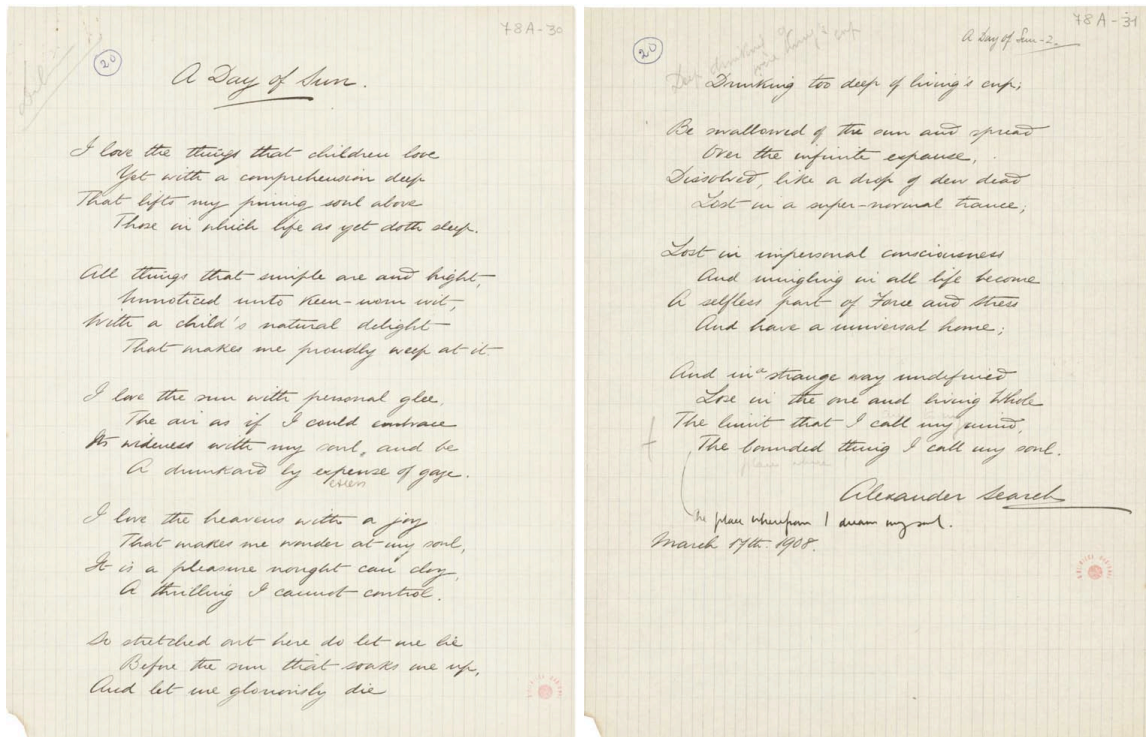 78A-30
20
A Day of Sun.
I love the things that children love
Yet with a comprehension deep
That lifts my pining soul above
Those in which life as yet doth sleep.
All things that simple are and bright,
Unnoticed unto keen-worn wit,
With a child's natural delight
That makes me proudly weep at it.
I love the sun with personal glee,
The air as if I could embrace
Its wideness with my soul, and be
A drunkard by expense of gaze.
excess
I love the heavens with a joy
That makes me wonder at my soul,
It is a pleasure nought can cloy,
A thrilling I cannot control.
So stretched out here do let me lie
Before the sun that soaks me up,
And let me gloriously die
78A-31
20
A Day of Sun-2.
Deep drinking of
living's cup
Drinking too deep of living's cup;
Be swallowed of the sun and spread
Over the infinite expanse,
Dissolved, like a drop of dew dead
Lost in a super-normal trance;
Lost in impersonal consciousness
And mingling in all life become
A selfless part of Force and Stress
And have a universal home;
And in a strange way undefined
Lose in the one and living Whole
The limit that I call my mind,
The bounded thing I call my soul.
place where
Alexander Search
the place wherefrom I dream my soul.
March 17th. 1908.